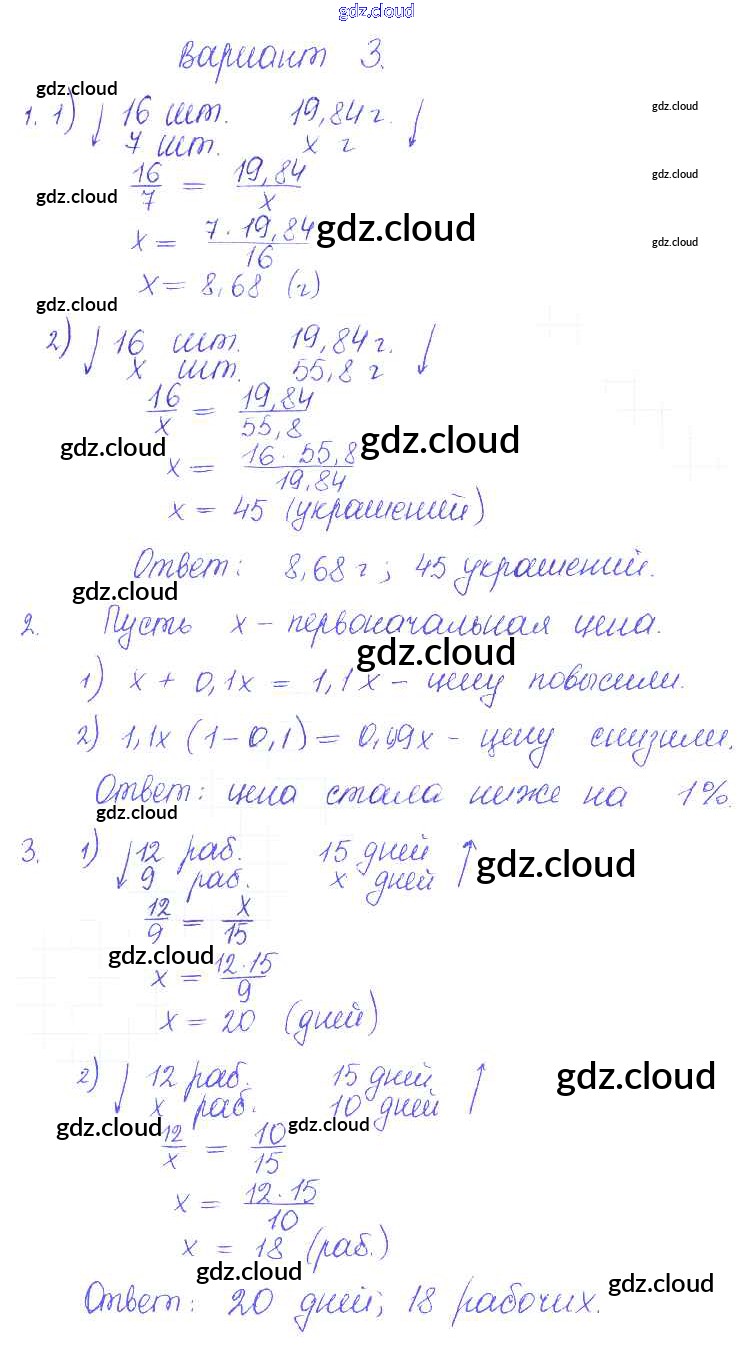 gdz.cloud
Вариант 3.
gdz.cloud
1. 1) ↓ 16 шт. 19,84 г. ↓
gdz.cloud
7 шт. x г
16/7 = 19,84/x
gdz.cloud
gdz.cloud
x = 7 · 19,84/16
gdz.cloud
gdz.cloud
x = 8,68 (г)
gdz.cloud
2) ↓ 16 шт. 19,84 г. ↓
x шт. 55,8 г
16/x = 19,84/55,8
gdz.cloud
gdz.cloud
x = 16 · 55,8/19,84
x = 45 (украшений)
Ответ: 8,68 г; 45 украшений.
gdz.cloud
2. Пусть x – первоначальная цена.
gdz.cloud
1) x + 0,1x = 1,1x – цену повысили.
2) 1,1x (1 – 0,1) = 0,99x – цену снизили.
Ответ: цена стала ниже на 1%.
gdz.cloud
3. 1) ↓ 12 раб. 15 дней ↑
gdz.cloud
9 раб. x дней
12/9 = x/15
gdz.cloud
x = 12·15/9
x = 20 (дней)
2) ↓ 12 раб. 15 дней ↑
gdz.cloud
x раб. 10 дней
gdz.cloud
gdz.cloud
12/x = 10/15
x = 12·15/10
x = 18 (раб.)
gdz.cloud
gdz.cloud
Ответ: 20 дней; 18 рабочих.